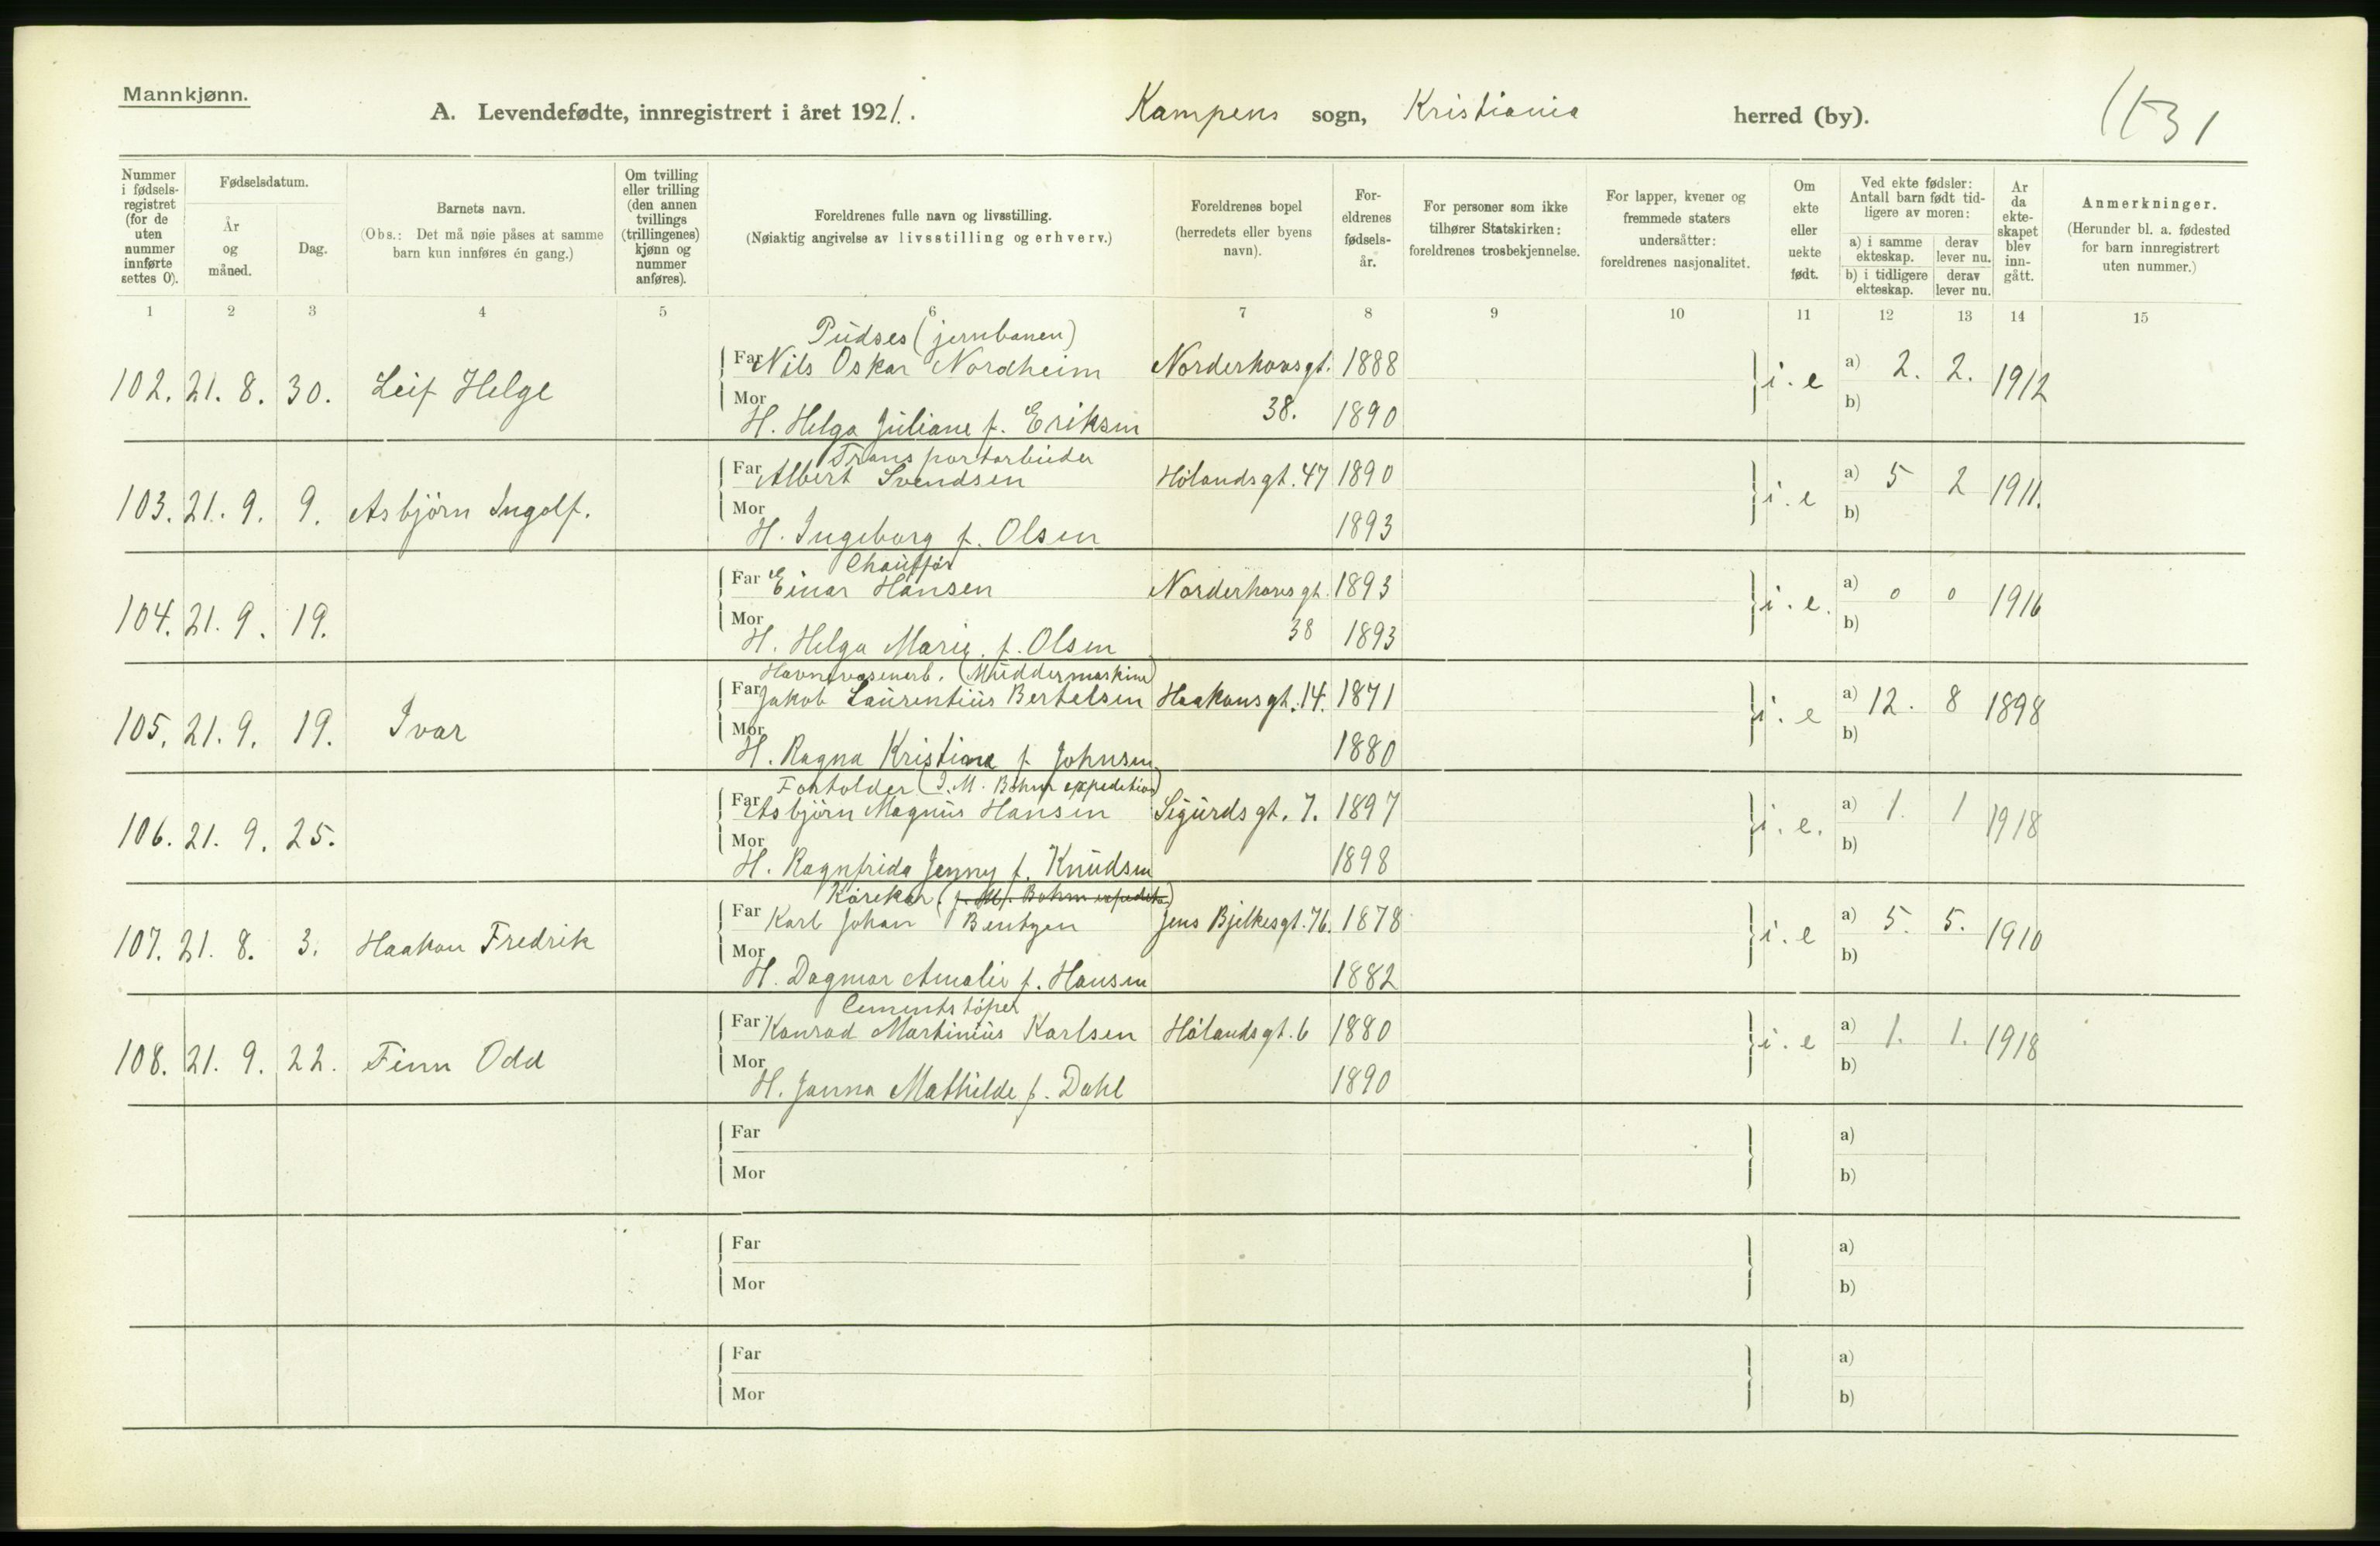 Mannkjønn.
A. Levendefødte, innregistrert i året 1921. Kampens sogn, Kristiania herred (by).
Nummer i fødsels- registret (for de uten nummer innførte settes 0).
Fødselsdatum.
År og måned.
Dag.
Barnets navn.
(Obs.: Det må nøie påses at samme barn kun innføres én gang.)
Om tvilling eller trilling (den annen tvillings (trillingenes) kjønn og nummer anføres).
Foreldrenes fulle navn og livsstilling.
(Nøiaktig angivelse av livsstilling og erhverv.)
Foreldrenes bopel (herredets eller byens navn).
For- eldrenes fødsels- år.
For personer som ikke tilhører Statskirken: foreldrenes trosbekjennelse.
For lapper, kvener og fremmede staters undersåtter: foreldrenes nasjonalitet.
Om ekte eller uekte født.
Ved ekte fødsler: Antall barn født tid- ligere av moren:
a) i samme ekteskap. derav lever nu.
b) i tidligere ekteskap. derav lever nu.
År da ekte- skapet blev inn- gått.
Anmerkninger.
(Herunder bl. a. fødested for barn innregistrert uten nummer.)
1 2 3 4 5 6 7 8 9 10 11 12 13 14 15
Pudses (jernbanen)
Far Nils Oskar Nordheim Norderhovsgt. 1888 a) 2. 2.
102. 21. 8. 30. Leif Helge i. e 1912
Mor H. Helga Juliane f. Eriksen 38. 1890 b)
Transportarbeider
Far Albert Svendsen Hölandsgt. 47 1890 a) 5 2
103. 21. 9. 9. Asbjörn Ingolf. i. e 1911.
Mor H. Ingeborg f. Olsen 1893 b)
Chaufför
Far Einar Hansen Norderhovsgt. 1893 a) 0 0
104. 21. 9. 19. i. e. 1916
Mor H. Helga Marie f. Olsen 38 1893 b)
Havnevæsenarb. (Muddermaskine)
Far Jakob Laurentius Bertelsen Haakonsgt. 14. 1871 a) 12. 8
105. 21. 9. 19. Ivar i. e 1898
Mor H. Ragna Kristine f. Johnsen 1880 b)
(J. M. Böhm expedition)
Far Asbjörn Magnus Hansen Sigurdsgt. 7. 1897 a) 1. 1
106. 21. 9. 25. i. e. 1918
Mor H. Ragnfrida Jenny f. Knudsen 1898 b)
Körekar. (J. M. Bohm expedition)
Far Karl Johan Bentzen Jens Bjelkesgt. 76. 1878 a) 5. 5.
107. 21. 8. 3. Haakon Fredrik i. e 1910
Mor H. Dagmar Amalie f. Hansen 1882 b)
Cementstöper
Far Konrad Martinius Karlsen Hölandsgt. 6 1880 a) 1. 1.
108. 21. 9. 22. Finn Odd i. e 1918
Mor H. Janna Mathilde f. Dahl 1890 b)
Far a)
Mor b)
Far a)
Mor b)
Far a)
Mor b)